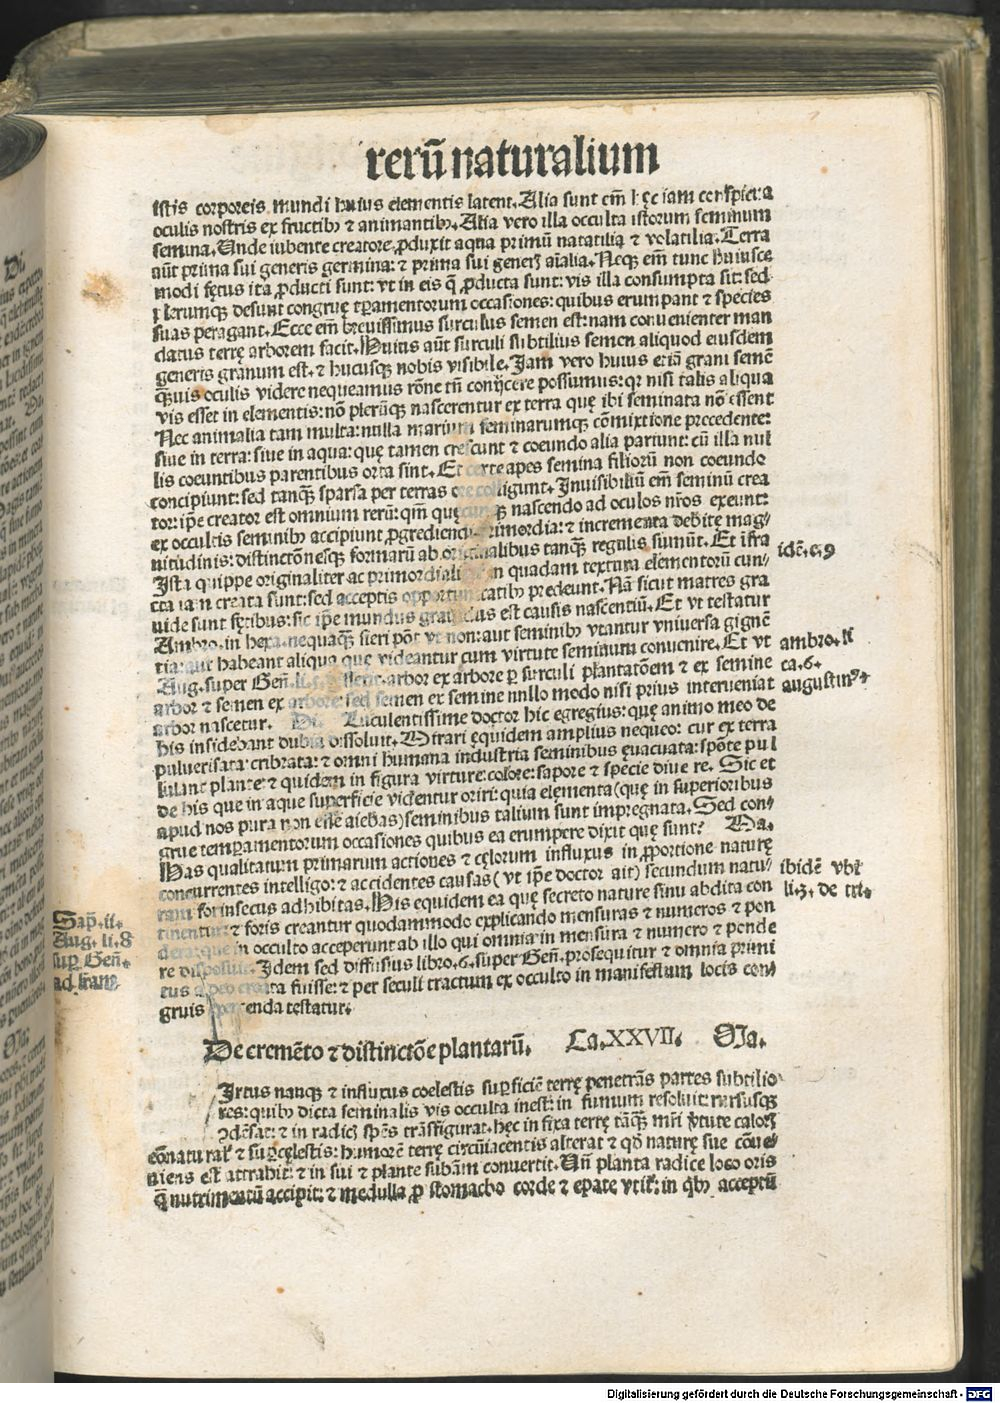 rerū naturalium
istis corporeis mundi huius elementis latent. Alia sunt em̄ hęc iam conspicua
oculis nostris ex fructibꝰ ⁊ animantibꝰ. Alia vero illa occulta istorum seminum
semina. Unde iubente creatore ꝓduxit aqua primū natatilia ⁊ volatilia. Terra
aūt prima sui generis germina: ⁊ prima sui generꝭ aīalia. Neqꝫ em̄ tunc huiusce
modi fętus ita ꝓducti sunt: vt in eis q̄ ꝓducta sunt: vis illa consumpta sit: sed
plerumqꝫ desunt congruę tꝑamentorum occasiones: quibus erumpant ⁊ species
suas peragant. Ecce em̄ breuissimus surculus semen est: nam conuenienter man
datus terrę arborem facit. Huius aūt surculi subtilius semen aliquod eiusdem
generis granum est. ⁊ hucusqꝫ nobis visibile. Jam vero huius etiā grani semē
q̄uis oculis videre nequeamus rōne tn̄ conijcere possumus: qꝛ nisi talis aliqua
vis esset in elementis: nō plerūqꝫ nascerentur ex terra quę ibi seminata nō essent
Nec animalia tam multa: nulla marium feminarumqꝫ cōmixtione precedente:
siue in terra: siue in aqua: quę tamen crescunt ⁊ coeundo alia pariunt: cū illa nul
lis coeuntibus parentibus orta sint. Et certe apes semina filiorū non coeundo
concipiunt: sed tanq̄ sparsa per terras ore colligunt. Inuisibiliū em̄ seminū crea
tor: ip̄e creator est omnium rerū: qm̄ quęcunqꝫ nascendo ad oculos nr̄os exeunt:
ex occultis seminibꝰ accipiunt ꝓgrediendi primordia: ⁊ incrementa debitę mag/
nitudinis: distinctōnesqꝫ formarū ab originalibus tanq̄ regulis sumūt. Et īfra
Ista quippe originaliter ac primordialiter in quadam textura elementorū cun/
cta iam creata sunt: sed acceptis opportunitatibꝰ prodeunt. Nā sicut matres gra
uide sunt fętibus: sic ip̄e mundus grauidus est causis nascentiū. Et vt testatur
Ambro. in hexa. nequaq̄ fieri pōt vt non: aut seminibꝰ vtantur vniuersa gignē
tia: aut habeant aliqua quę videantur cum virtute seminum conuenire. Et vt
Aug. super Gen̄. arbor ex arbore ꝑ surculi plantatōem ⁊ ex semine
arbor ⁊ semen ex arbore: sed semen ex semine nullo modo nisi prius interueniat
arbor nascetur. Luculentissime doctor hic egregius: quę animo meo de
his insidebant dubia dissoluit. Mirari ęquidem amplius nequeo: cur ex terra
puluerisata: cribrata: ⁊ omni humana industria seminibus ęuacuata: spōte pul
lulant plante: ⁊ quidem in figura virture: colore: sapore ⁊ specie diue re. Sic et
de his que in aque superficie videntur oriri: quia elementa (quę in superioribus
apud nos pura non esse aiebas) seminibus talium sunt impregnata. Sed con/
grue temꝑamentorum occasiones quibus ea erumpere dixit quę sunt? Ma.
Has qualitatum primarum actiones ⁊ cęlorum influxus in ꝓportione naturę
concurrentes intelligo: ⁊ accidentes causas (vt ip̄e doctor ait) secundum natu/
ram forinsecus adhibitas. His equidem ea quę secreto nature sinu abdita con
tinentur: ⁊ foris creantur quodammodo explicando mensuras ⁊ numeros ⁊ pon
dera: que in occulto acceperunt ab illo qui omnia in mensura ⁊ numero ⁊ ponde
re disposuit. Idem sed diffusius libro. 6. super Gen̄. prosequitur ⁊ omnia primi
tus a deo creata fuisse: ⁊ per seculi tractum ex occulto in manifestum locis con/
gruis aperienda testatur.
idē. c. 9
ambro. li
ca. 6.
augustinꝰ
ibidē vbi
li. 3. de tri.
Sap̄. 11.
Aug. li. 8
suꝑ Gen̄.
De cremēto ⁊ distinctōe plantarū. Ca. XXVII. Ma.
Irtus nanqꝫ ⁊ influxus coelestis suꝑficiē terrę penetrās partes subtilio
res: quibꝰ dicta seminalis vis occulta inest: in fumum resoluit: rursusqꝫ
ↄdēsat: ⁊ in radicꝭ spēs trāsfigurat. hęc in fixa terrę tāq̄ mr̄i ꝟtute calorꝭ
cōnaturalꝭ ⁊ suꝑcęlestis: humorē terrę circūiacentis alterat ⁊ qd̄ naturę sue cōue/
niens est attrahit: ⁊ in sui ⁊ plante subām conuertit. Un̄ planta radice loco oris
q̄ nutrimentū accipit: ⁊ medulla ꝓ stomacho corde ⁊ epate vtit̄: in qbꝰ acceptū
Digitalisierung gefördert durch die Deutsche Forschungsgemeinschaft - DFG